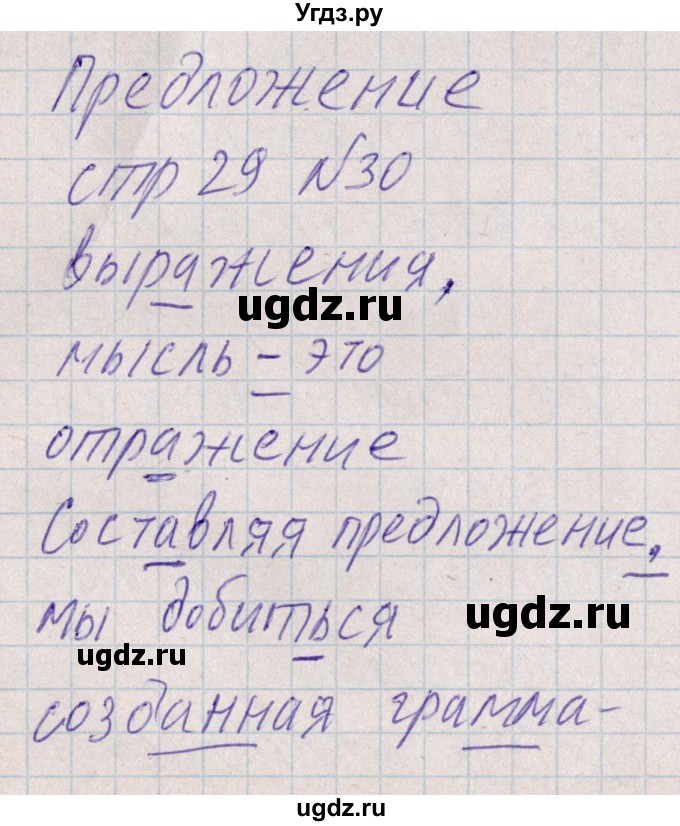 Угдз.ру
Предложение
стр 29 №30
выражения,
ugdz.ru
мысль - это
отражение
Составляя предложение,
мы добиться
ugdz.ru
ugdz.ru
созданная грамма-
ugdz.ru